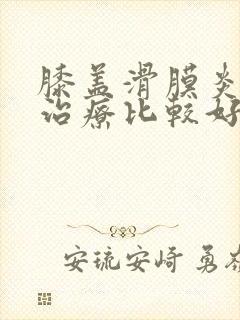 膝盖滑膜炎
治療比較好
安琉安崎 勇